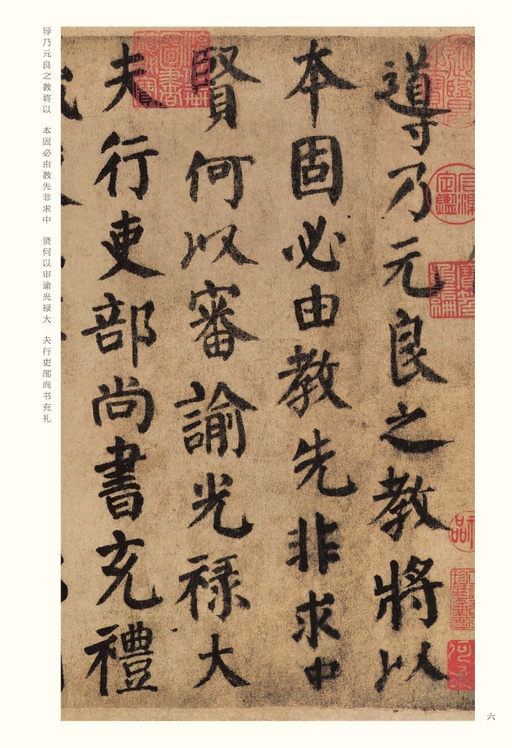 導乃元良之教將以
本固必由教先非求中
賢何以審諭光祿大
夫行吏部尚書充禮
导乃元良之教将以　本固必由教先非求中　贤何以审谕光禄大　夫行吏部尚书充礼
六